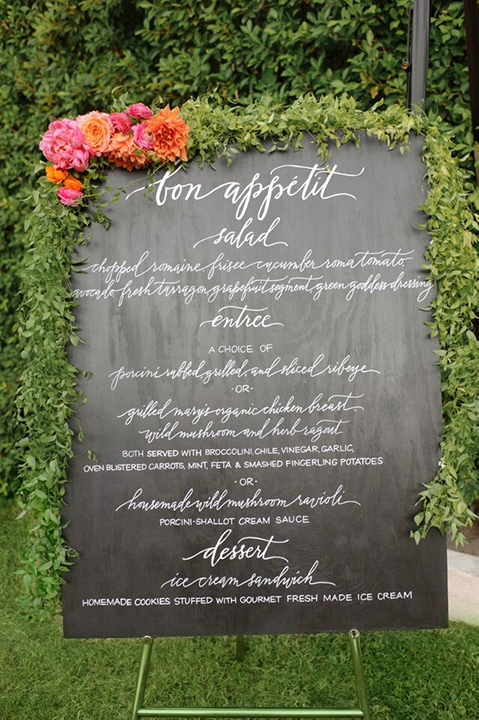 bon appétit
salad
chopped romaine frisee cucumber roma tomato
avocado fresh tarragon grapefruit segment green goddess dressing
entrée
A CHOICE OF
porcini rubbed grilled and sliced ribeye
-OR-
grilled mary's organic chicken breast
wild mushroom and herb ragout
BOTH SERVED WITH BROCCOLINI, CHILE, VINEGAR, GARLIC,
OVEN BLISTERED CARROTS, MINT, FETA & SMASHED FINGERLING POTATOES
-OR-
housemade wild mushroom ravioli
PORCINI-SHALLOT CREAM SAUCE
dessert
ice cream sandwich
HOMEMADE COOKIES STUFFED WITH GOURMET FRESH MADE ICE CREAM